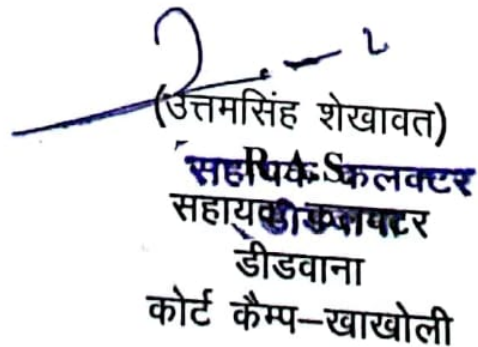 (उत्तमसिंह शेखावत)
R.A.S.
सहायक कलक्टर
सहायक कलक्टर
डीडवाना
डीडवाना
कोर्ट कैम्प–खाखोली